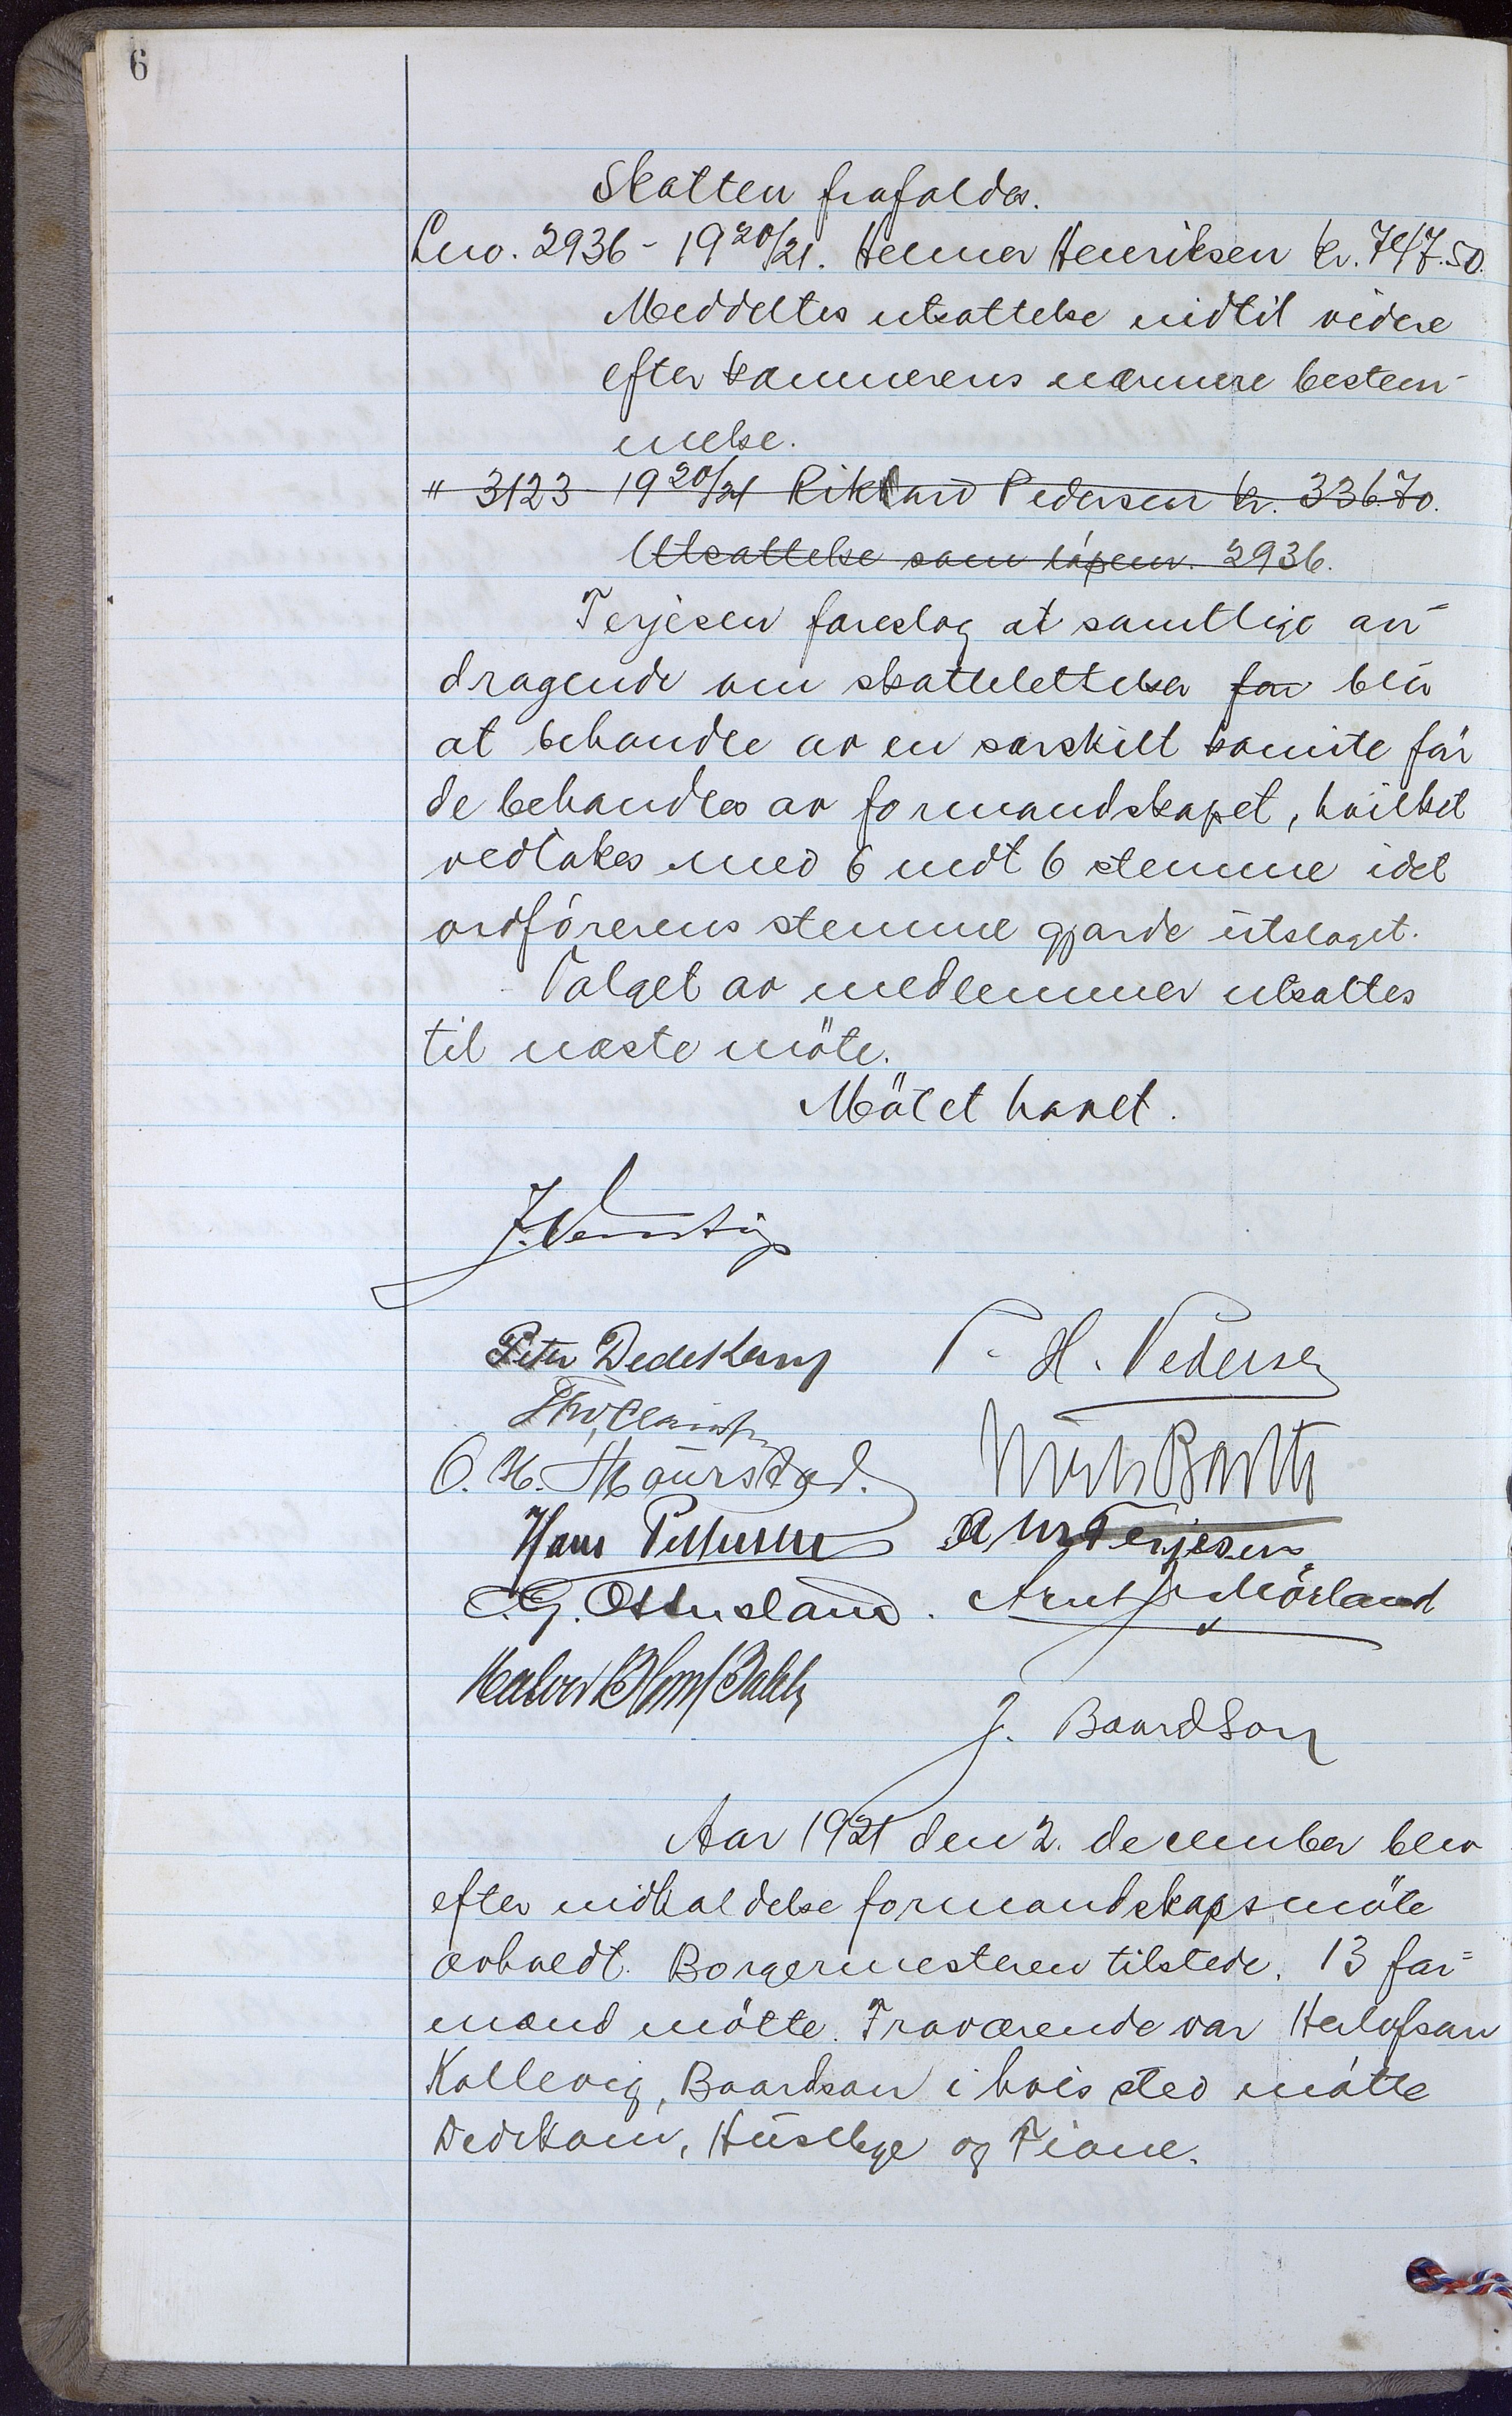 6
Skatten frafaldes.
Lno. 2936 - 19 20/21. Helmer Henriksen kr. 747.50.
Meddeltes utsættelse indtil videre
efter kæmnerens nærmere bestem-
melse.
" 3123 - 19 20/21 Rikhard Pedersen kr. 336.70.
Utsættelse som löpenr. 2936.
Terjesen foreslog at samtlige an-
dragende om skattelettelser for blir
at behandle av en særskilt komite før
de behandles av formandskapet, hvilket
vedtokes med 6 mot 6 stemme idet
ordförerens stemme gjorde utslaget.
Valget av medlemmer utsattes
til næste möte.
Mötet hævet.
Peter Dedekam P. H. Pedersen
O. H. Maurstad. Barth
Hans Pettersen Terjesen
C. G. Ottersland. Arnt J. Mörland
J. Baardson
Aar 1921 den 2. december blev
efter indkaldelse formandskapsmöte
avholdt. Borgermesteren tilstede. 13 for-
mænd mötte. Fraværende var Herlofson
Kallevig, Baardson i hvis sted mötte
Dedekam, Huslbye og Fiane.